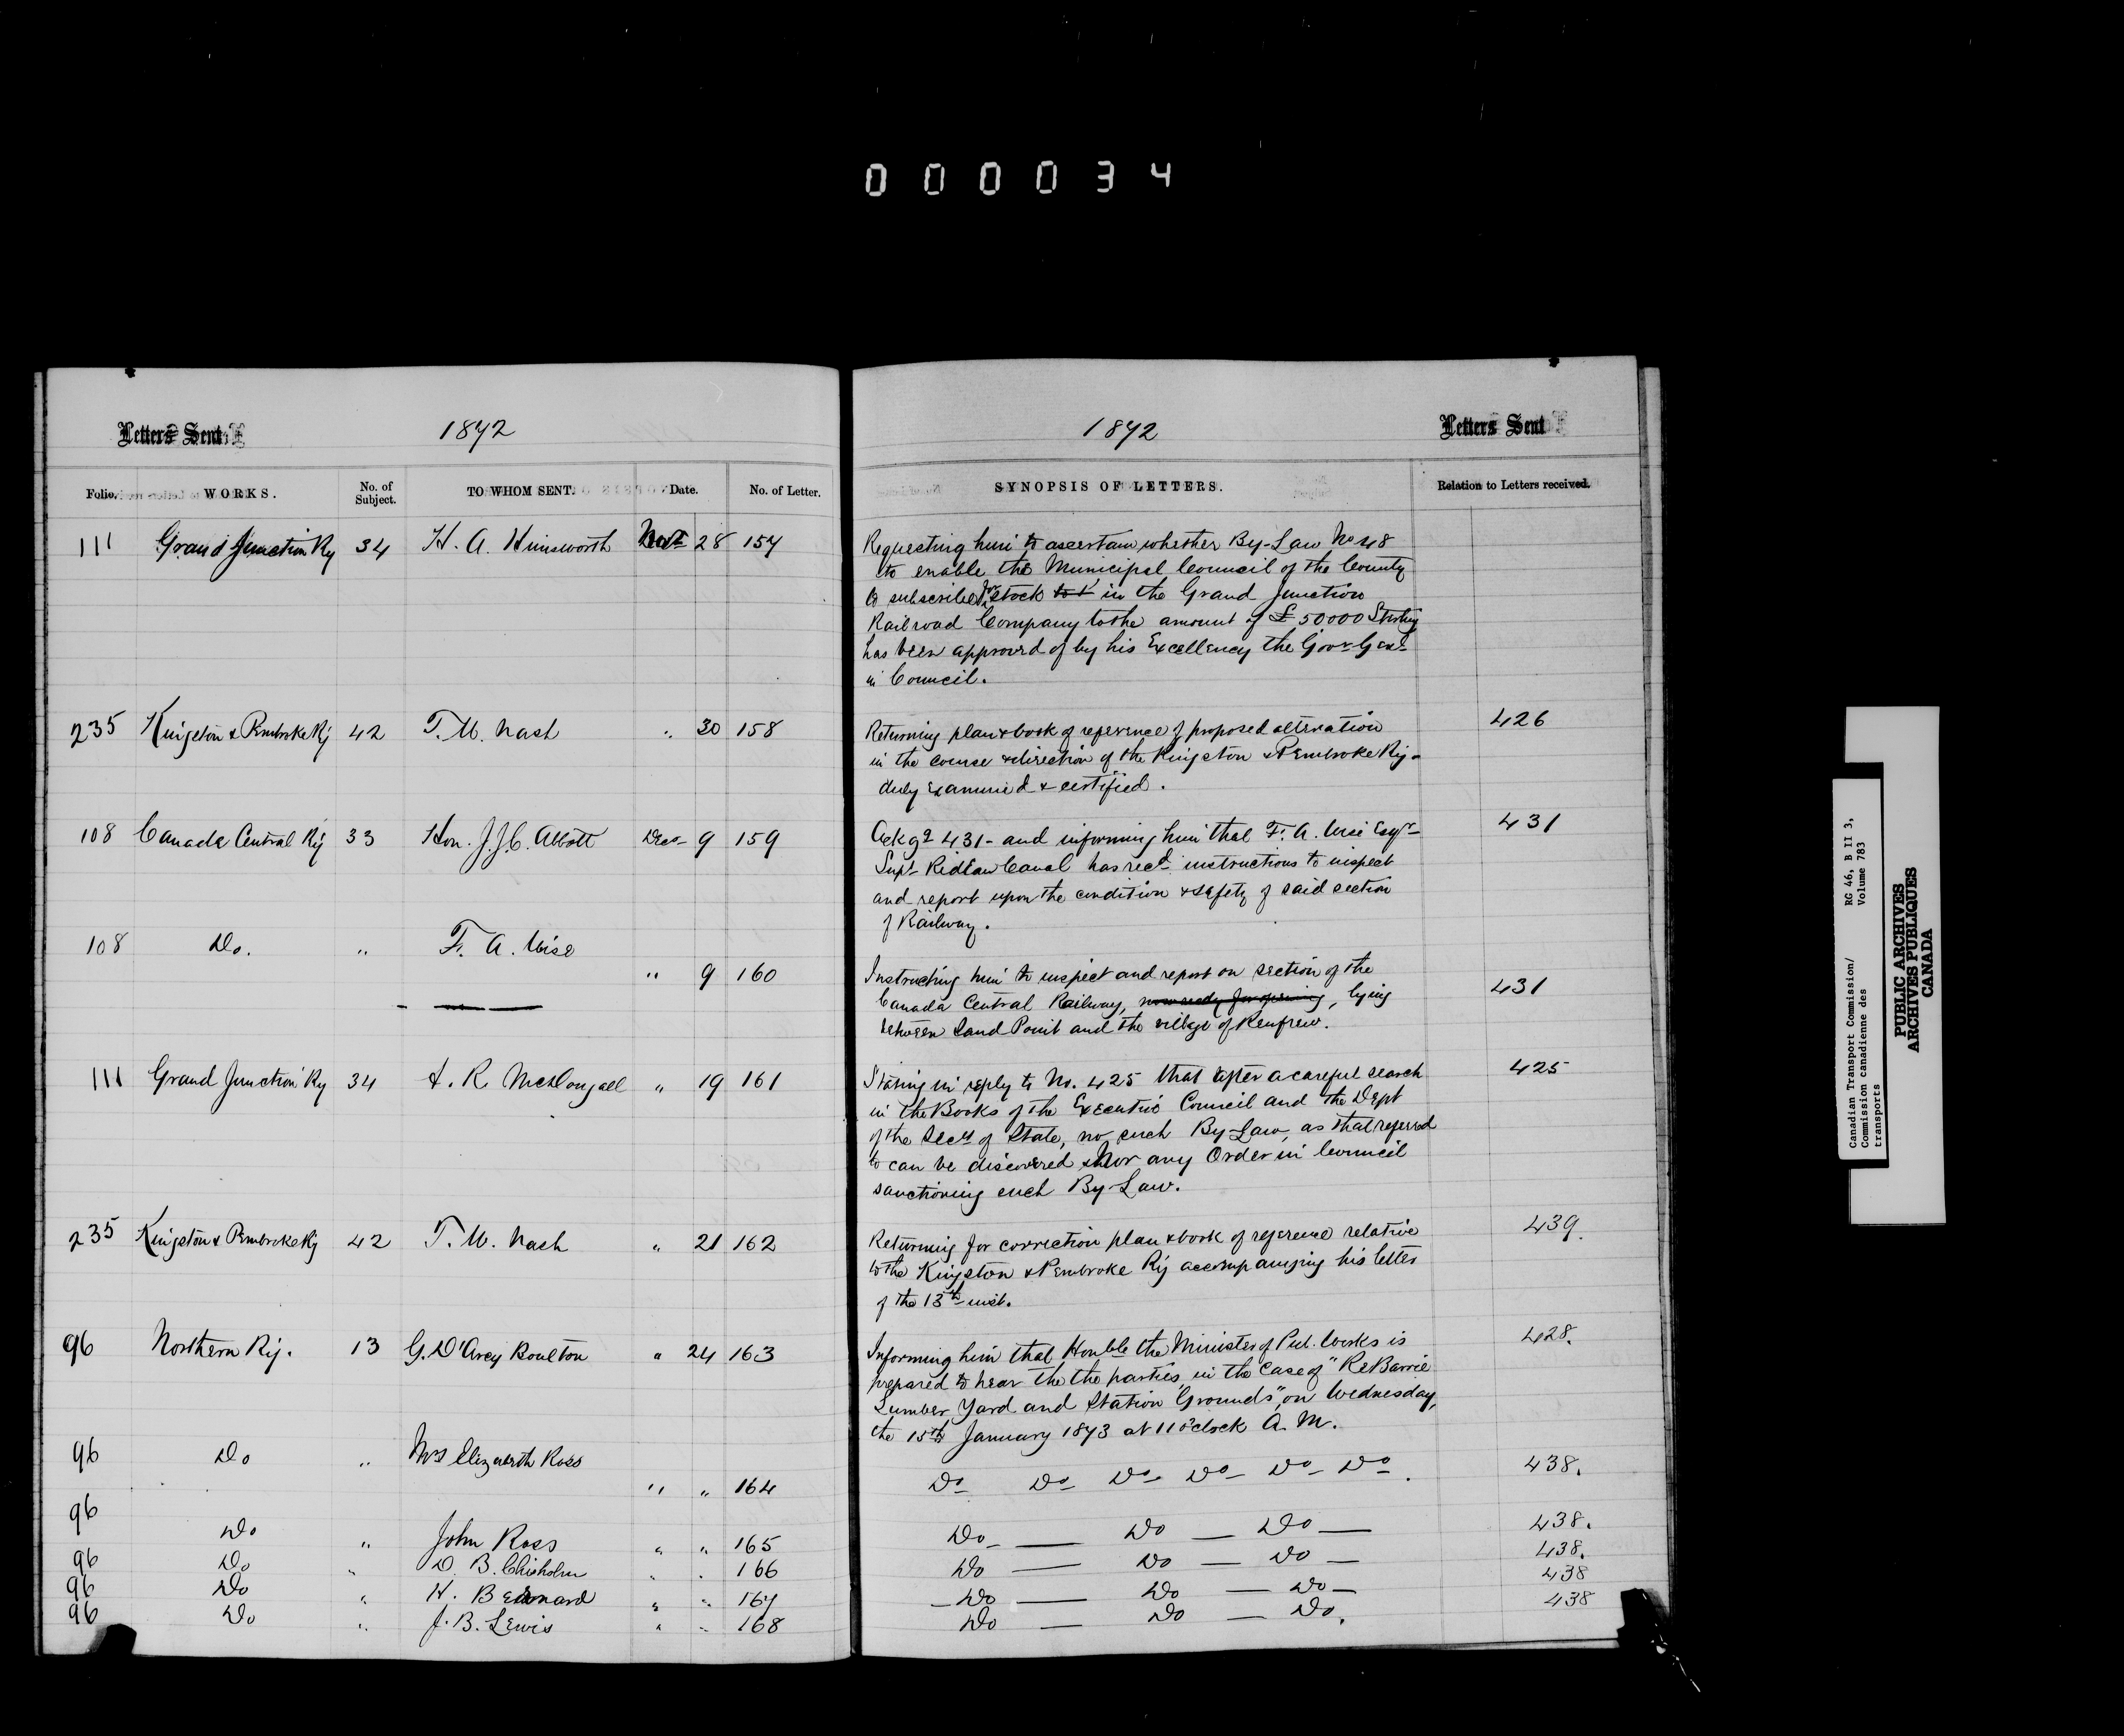 000034
Letters Sent
1872
Folio. WORKS. No. of Subject. TO WHOM SENT. Date. No. of Letter.
111 Grand Junction Ry 34 H. A. Himsworth Novr 28 157
235 Kingston & Pembroke Ry 42 T. W. Nash " 30 158
108 Canada Central Ry 33 Hon. J.J.C. Abbott Decr 9 159
108 Do. " F. A. Wise
" 9 160
111 Grand Junction Ry 34 A. R. McDougall " 19 161
235 Kingston & Pembroke Ry 42 T. W. Nash " 21 162
96 Northern Ry. 13 G. D'Arcy Boulton " 24 163
96 Do " Mrs Elizabeth Ross
" " 164
96
Do " John Ross " " 165
96 Do " D. B. Chisholm " " 166
96 Do " H. Bernard " " 167
96 Do " J. B. Lewis " " 168
1872
Letters Sent
SYNOPSIS OF LETTERS. Relation to Letters received.
Requesting him to ascertain whether By-Law No 48
to enable the Municipal Council of the County
to subscribe for stock in the Grand Junction
Railroad Company to the amount of £50000 Sterling
has been approved of by his Excellency the Govr Genl
in Council.
Returning plan & book of reference of proposed alteration 426
in the course & direction of the Kingston & Pembroke Ry-
duly examined & certified.
Ackgg 431 - and informing him that F. A. Wise Esqr 431
Supt Rideau Canal has recd instructions to inspect
and report upon the condition & safety of said section
of Railway.
Instructing him to inspect and report on section of the
Canada Central Railway, now ready for opening, lying 431
between Sand Point and the village of Renfrew.
Stating in reply to No. 425 that after a careful search 425
in the Books of the Executive Council and the Dept
of the Secy of State, no such By-Law, as that referred
to can be discovered nor any Order in Council
sanctioning such By-Law.
Returning for correction plan & book of reference relative 439.
to the Kingston & Pembroke Ry accompanying his letter
of the 13th inst.
Informing him that Honble the Minister of Pub. Works is 428.
prepared to hear the the parties, in the Case of "Re Barrie
Lumber Yard and Station Grounds", on Wednesday,
the 15th January 1873 at 11 o'clock A.M.
Do Do Do Do Do Do. 438.
Do - — Do — Do — 438.
Do — Do — Do — 438.
— Do — Do — Do — 438
Do — Do — Do. 438
Canadian Transport Commission/ RG 46, B II 3,
Commission canadienne des Volume 783
transports
PUBLIC ARCHIVES
ARCHIVES PUBLIQUES
CANADA